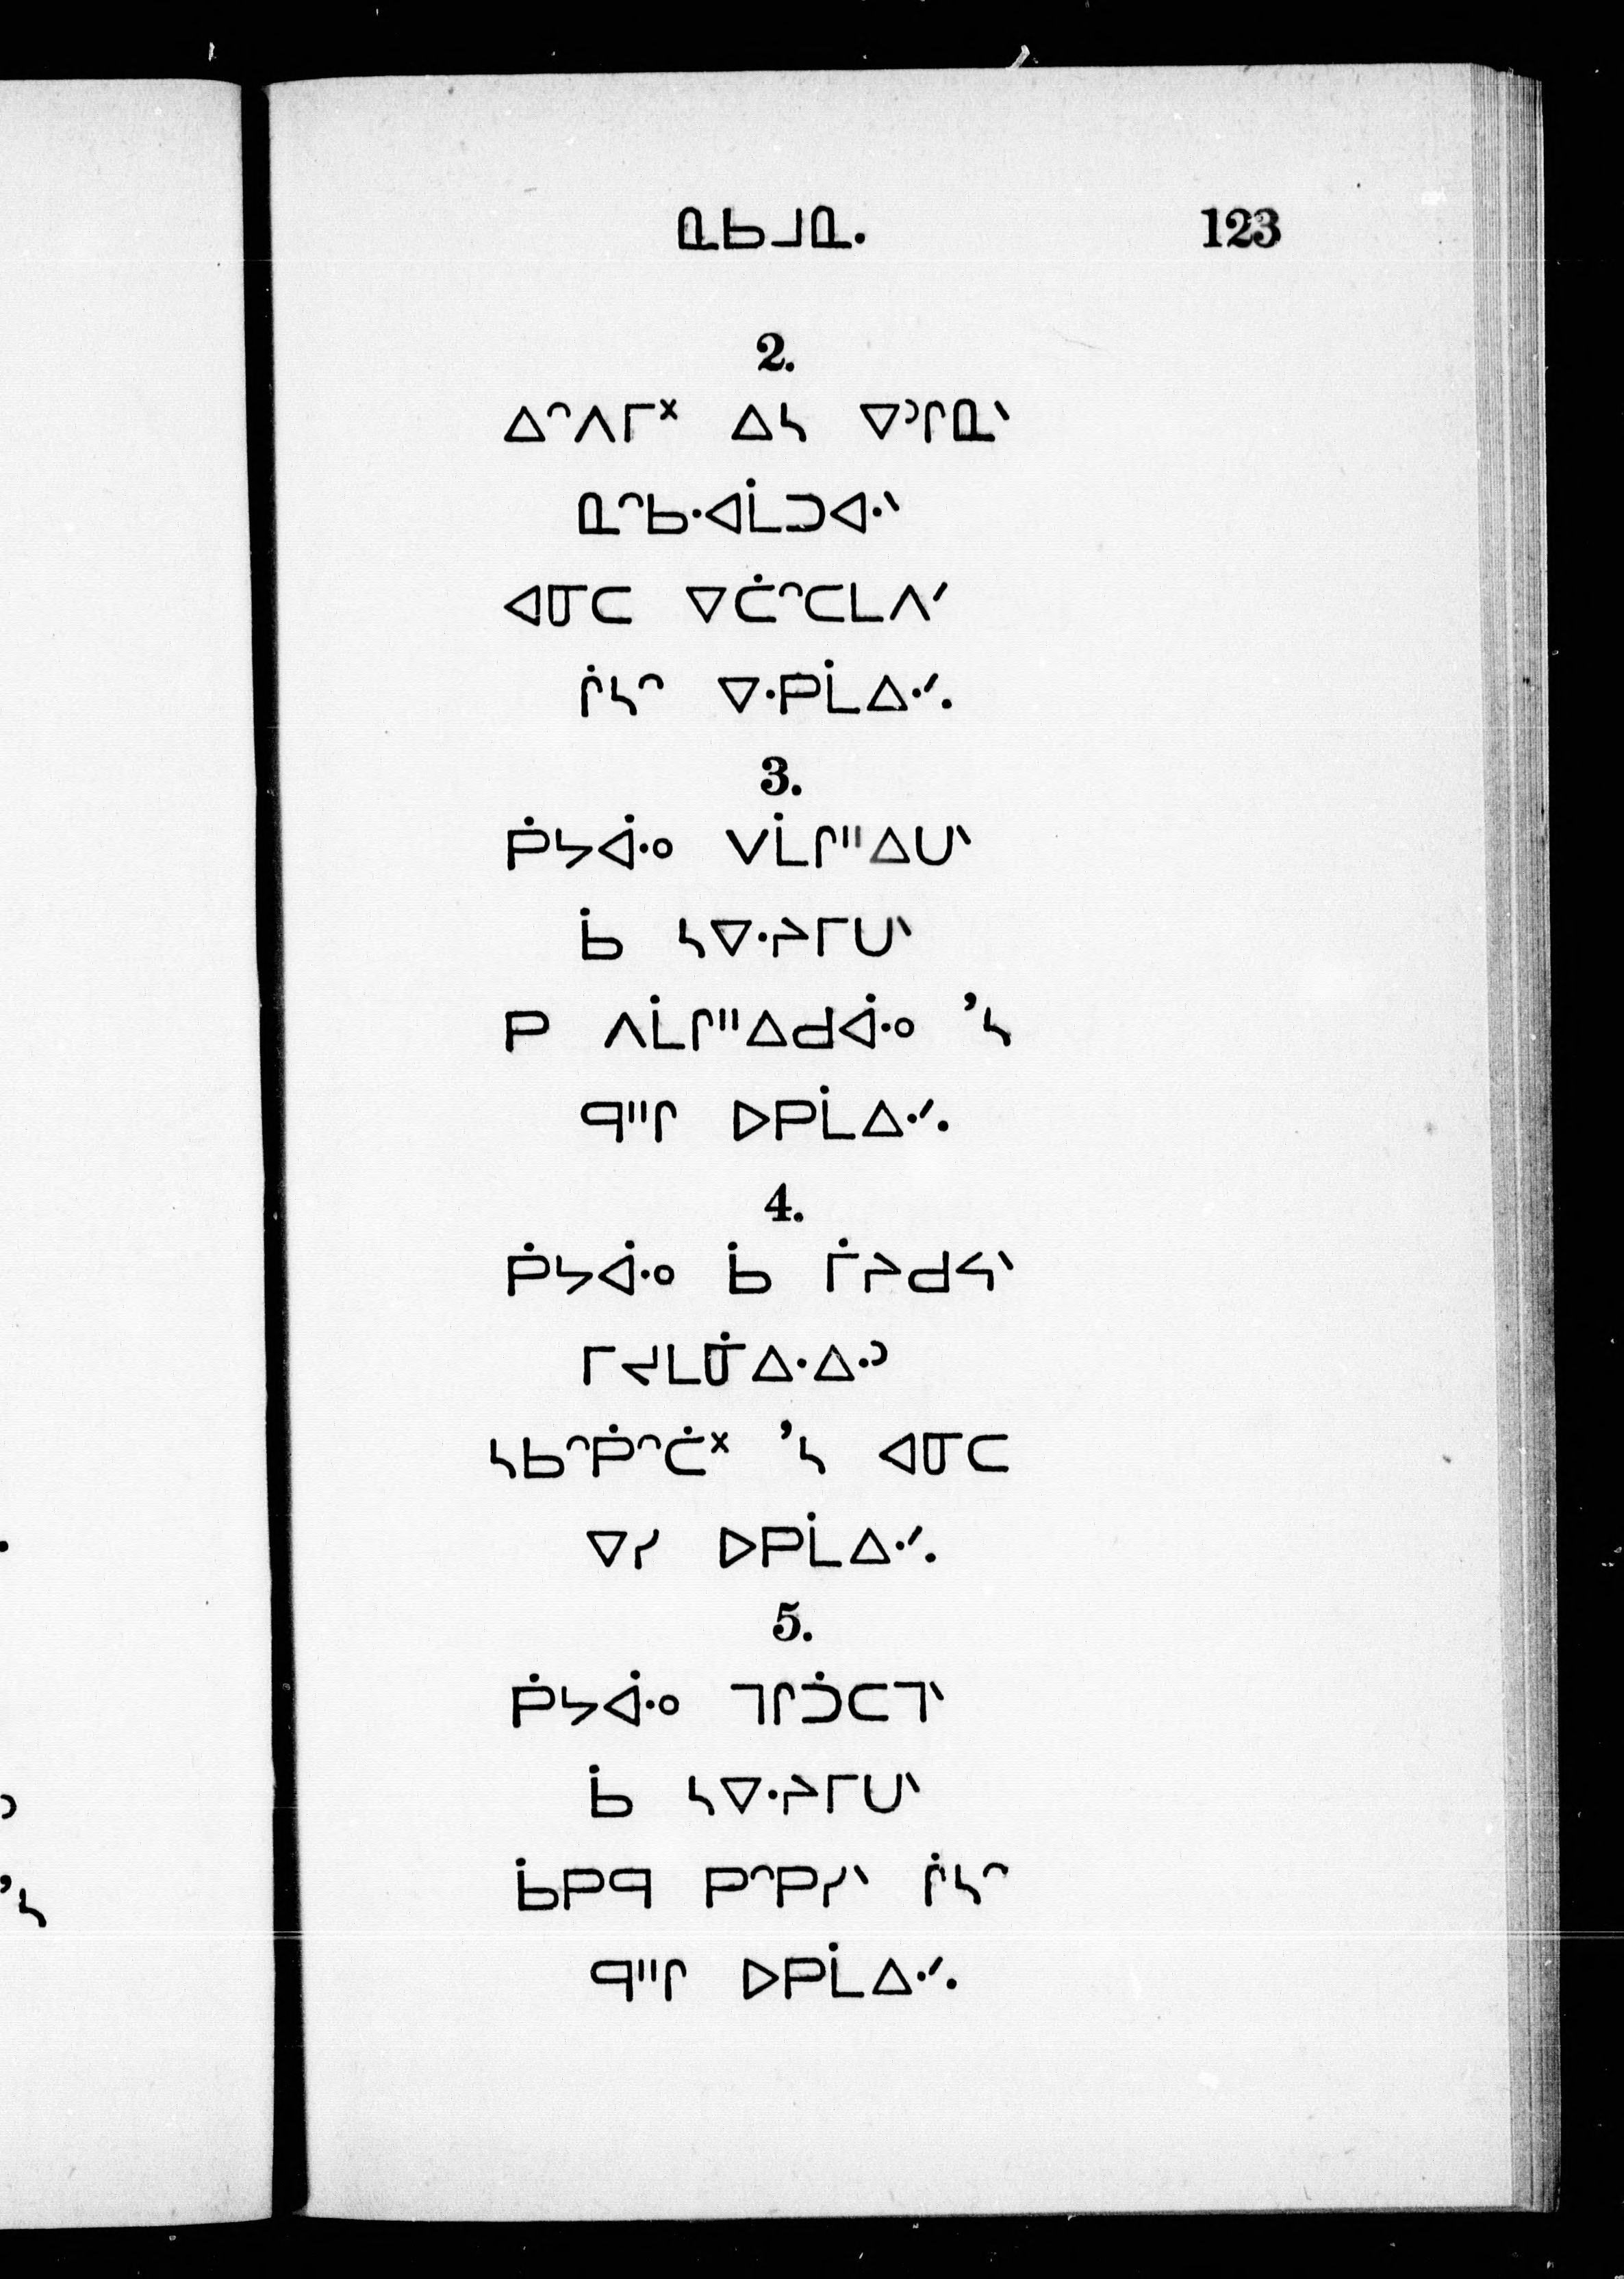 ᓇᑲᒧᓇ. 123
2.
ᐃᐢᐱᒥᕽ ᐃᓴ ᐁᐣᒋᓇᐠ
ᓇᐢᑲᐧᐊᒫᑐᐊᐧᐠ
ᐊᓂᑕ ᐁᑖᐢᑕᒪᐱᐟ
ᒌᓴᐢ ᐁᐧᑭᒫᐃᐧᐟ.
3.
ᑮᔭᐋᐧᐤ ᐯᒫᒋᐦᐃᑌᐠ
ᑳ ᓴᐁᐧᔨᒥᑌᐠ
ᑭ ᐱᒫᒋᐦᐃᑯᐋᐧᐤ ’ᓴ
ᑫᐦᒋ ᐅᑭᒫᐃᐧᐟ.
4.
ᑮᔭᐋᐧᐤ ᑳ ᒦᔨᑯᔦᐠ
ᒥᔪᒪᓃᐃᐧᐃᐧᐣ
ᓴᑲᐢᑮᐢᑖᕽ ’ᓴ ᐊᓂᑕ
ᐁᓯ ᐅᑭᒫᐃᐧᐟ.
5.
ᑮᔭᐋᐧᐤ ᒣᒋᑑᑕᒣᐠ
ᑳ ᓴᐁᐧᔨᒥᑌᐠ
ᑳᑭᑫ ᑭᐢᑭᓯᐠ ᒌᓴᐢ
ᑫᐦᒋ ᐅᑭᒫᐃᐧᐟ.